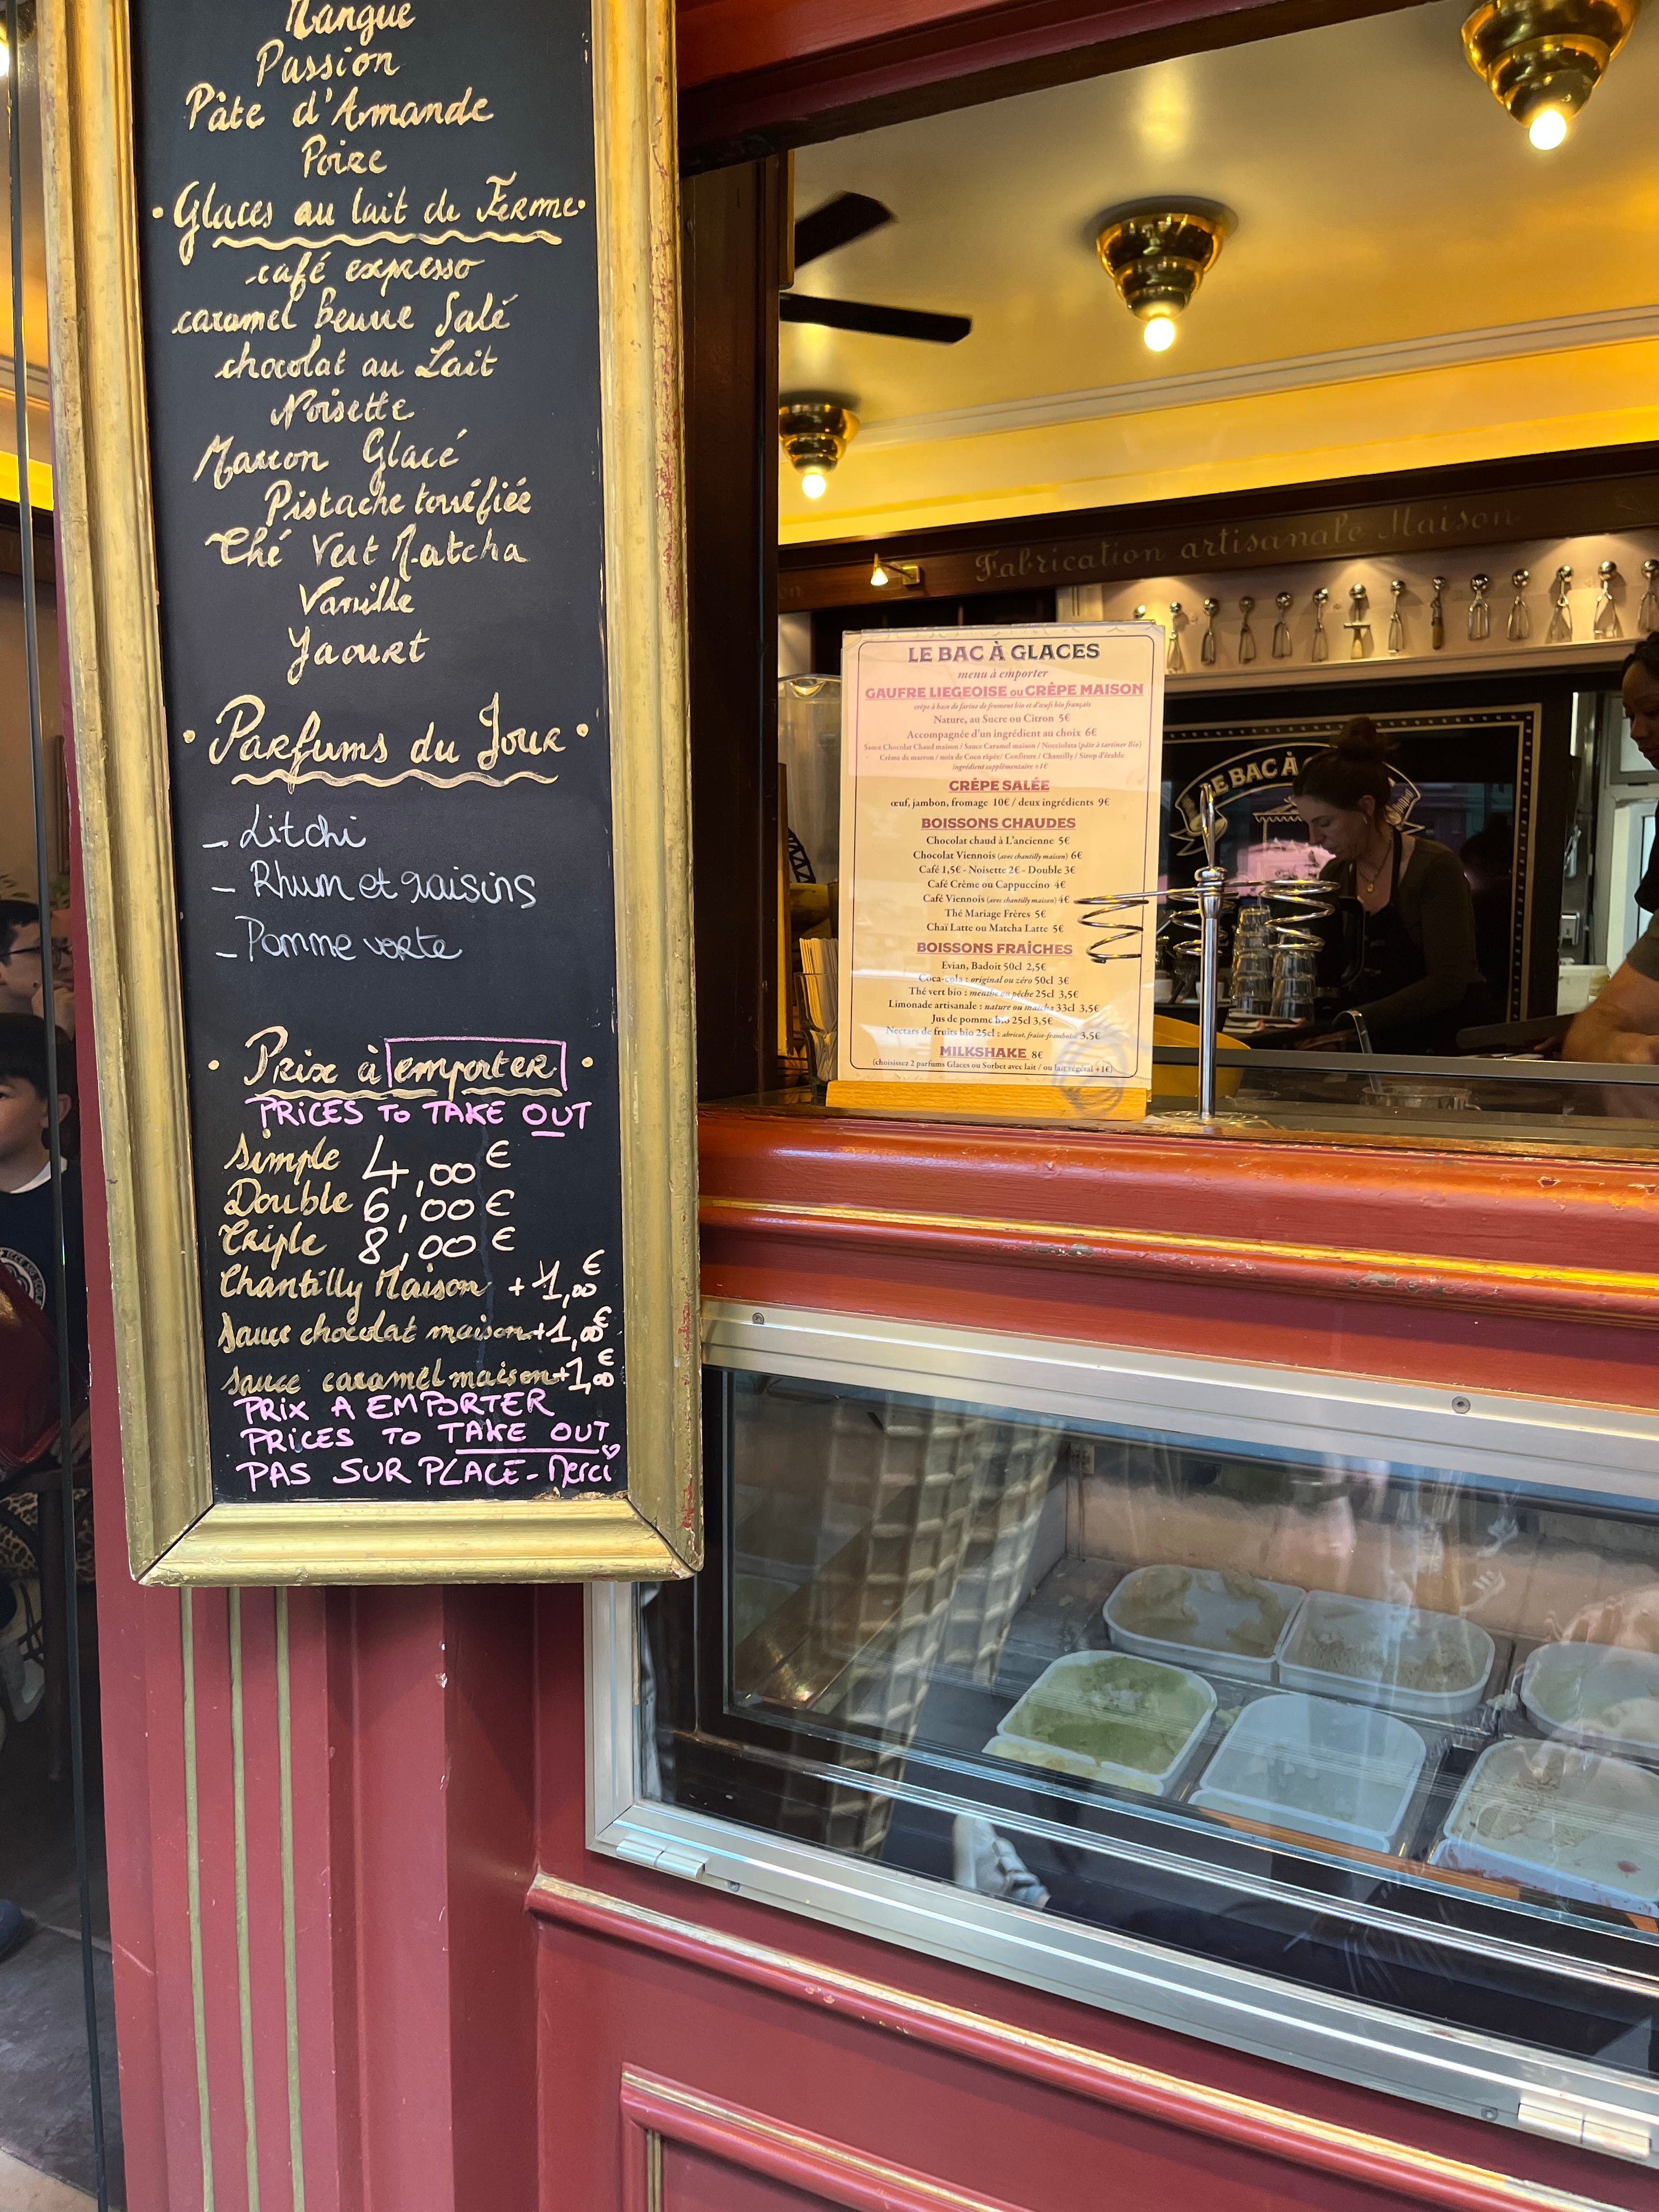 Mangue
Passion
Pâte d'Amande
Poire
• Glaces au lait de Ferme •
café expresso
caramel Beurre Salé
chocolat au Lait
Noisette
Marron Glacé
Pistache torréfiée
Thé Vert Matcha
Vanille
Yaourt
• Parfums du Jour •
- Litchi
- Rhum et raisins
- Pomme verte
• Prix à emporter •
PRICES TO TAKE OUT
Simple 4,00 €
Double 6,00 €
Triple 8,00 €
Chantilly Maison +1,00 €
Sauce chocolat maison +1,00 €
Sauce caramel maison +1,00 €
PRIX A EMPORTER
PRICES TO TAKE OUT
PAS SUR PLACE - Merci
Fabrication artisanale Maison
LE BAC À GLACES
menu à emporter
GAUFRE LIEGEOISE ou CRÊPE MAISON
crêpe à base de farine de froment bio et d'œufs bio français
Nature, au Sucre ou Citron 5€
Accompagnée d'un ingrédient au choix 6€
Sauce Chocolat Chaud maison / Sauce Caramel maison / Nocciolata (pâte à tartiner Bio)
Crème de marron / noix de Coco râpée / Confiture / Chantilly / Sirop d'érable
ingrédient supplémentaire +1€
CRÊPE SALÉE
œuf, jambon, fromage 10€ / deux ingrédients 9€
BOISSONS CHAUDES
Chocolat chaud à L'ancienne 5€
Chocolat Viennois (avec chantilly maison) 6€
Café 1,5€ - Noisette 2€ - Double 3€
Café Crème ou Cappuccino 4€
Café Viennois (avec chantilly maison) 4€
Thé Mariage Frères 5€
Chaï Latte ou Matcha Latte 5€
BOISSONS FRAÎCHES
Evian, Badoit 50cl 2,5€
Coca-cola : original ou zéro 50cl 3€
Thé vert bio : menthe ou pêche 25cl 3,5€
Limonade artisanale : nature ou matcha 33cl 3,5€
Jus de pomme bio 25cl 3,5€
Nectars de fruits bio 25cl : abricot, fraise-framboise 3,5€
MILKSHAKE 8€
(choisissez 2 parfums Glaces ou Sorbet avec lait / ou lait végétal +1€)
LE BAC À